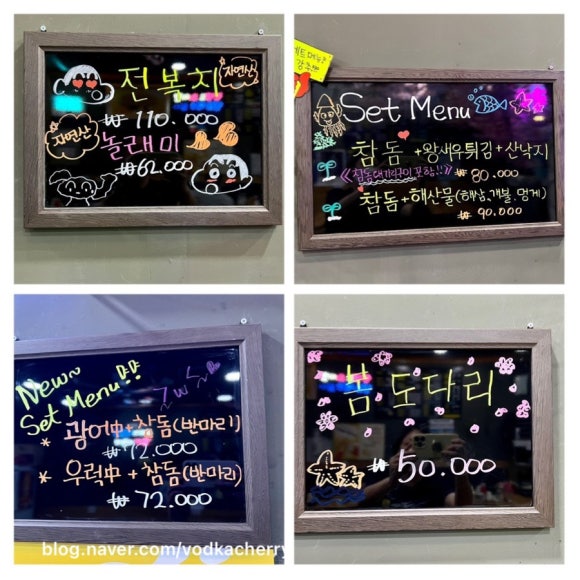 전복치
자연산
₩ 110.000
자연산
놀래미
₩62.000
Set Menu
참돔+왕새우튀김+산낙지
《참돔대가리구이 포함!!》 ₩ 80.000
참돔+해산물(해삼,개불.멍게)
₩ 90.000
New~
Set Menu!!
* 광어中+참돔(반마리)
₩ 72.000
* 우럭中+참돔(반마리)
₩ 72.000
봄도다리
₩ 50.000
blog.naver.com/vodkacherry